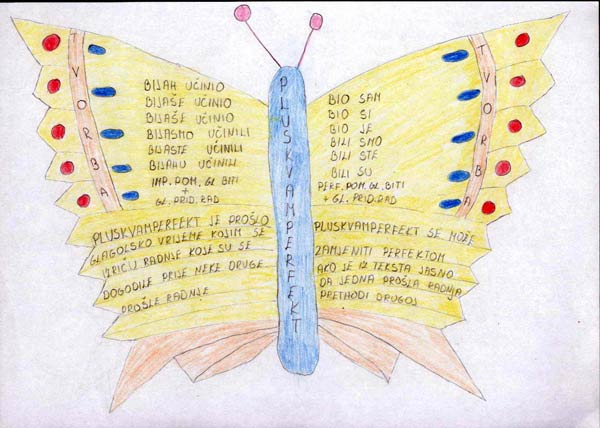 TVORBA
BIJAH UČINIO
BIJAŠE UČINIO
BIJAŠE UČINIO
BIJASMO UČINILI
BIJASTE UČINILI
BIJAHU UČINILI
IMP. POM. GL. BITI
+
GL. PRID. RAD
PLUSKVAMPERFEKT JE PROŠLO
GLAGOLSKO VRIJEME KOJIM SE
IZRIČU RADNJE KOJE SU SE
DOGODILE PRIJE NEKE DRUGE
PROŠLE RADNJE
PLUSKVAMPERFEKT
BIO SAM
BIO SI
BIO JE
BILI SMO
BILI STE
BILI SU
PERF. POM. GL. BITI
+ GL. PRID. RAD
TVORBA
PLUSKVAMPERFEKT SE MOŽE
ZAMJENITI PERFEKTOM
AKO JE IZ TEKSTA JASNO
DA JEDNA PROŠLA RADNJA
PRETHODI DRUGOJ